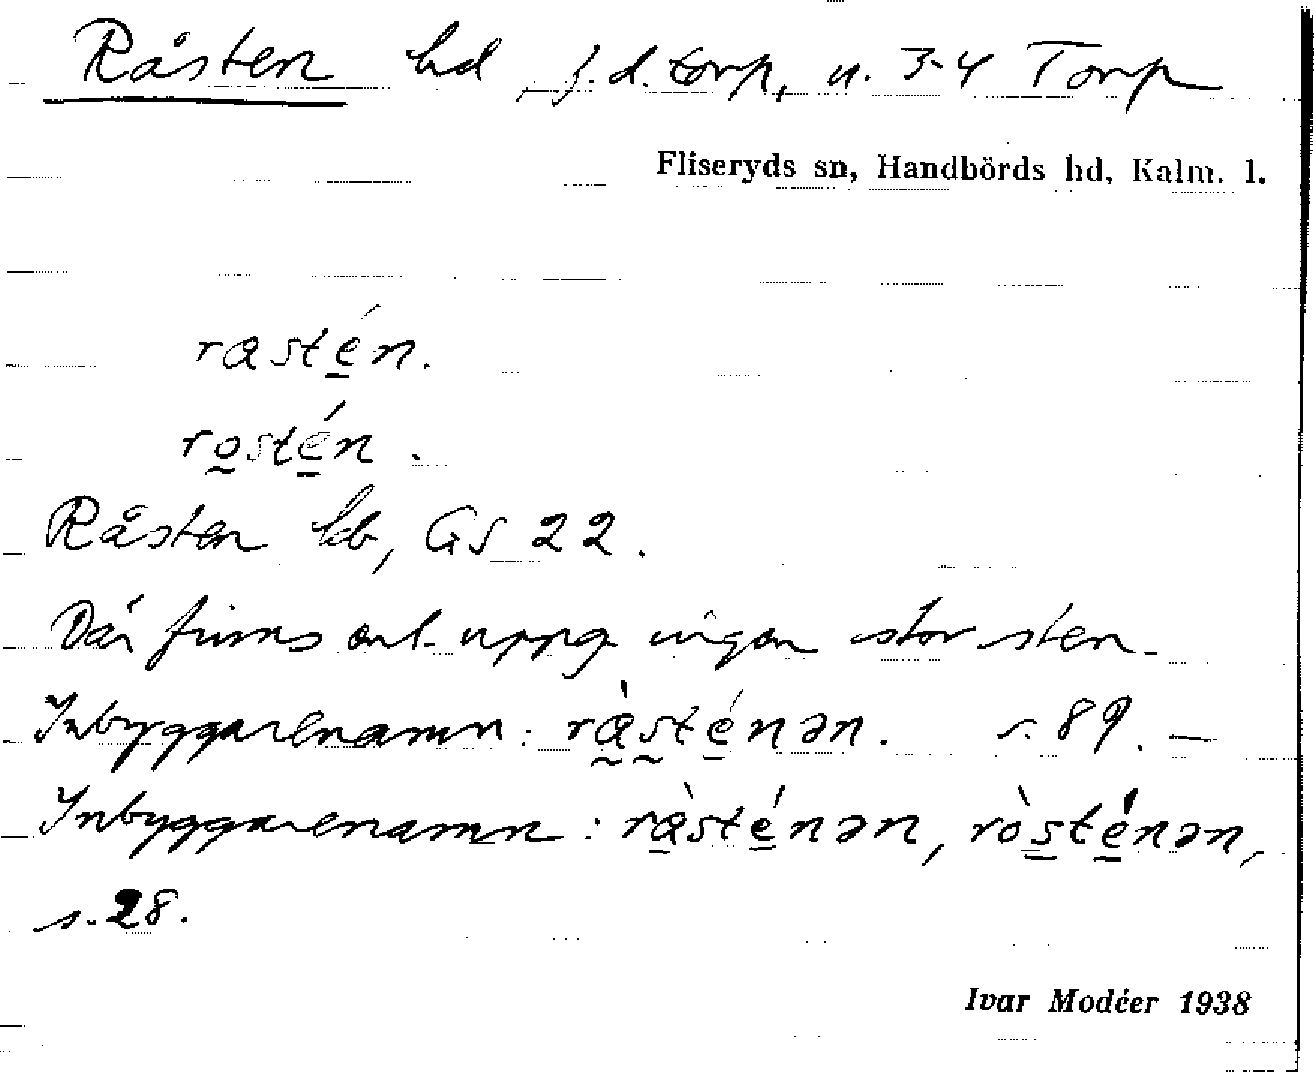 Råsten hd f.d. torp, n. 3-4 Torp
Fliseryds sn, Handbörds hd, Kalm. l.
rastén.
rostén.
Råsten hb, GS 22.
Där finns enl. uppg. ingen stor sten.
Inbyggarenamn: ràsténən. s. 89. —
Inbyggarenamn: ràsténən, ròsténən,
s. 28.
Ivar Modéer 1938